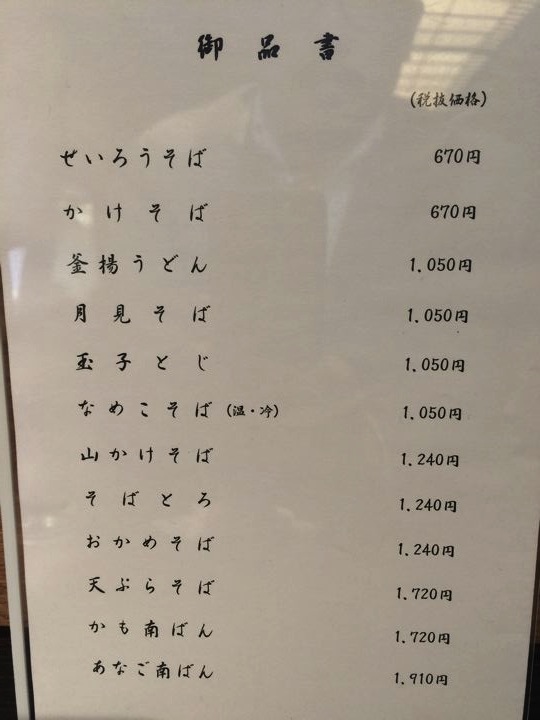 御品書
(税抜価格)
せいろうそば 670円
かけそば 670円
釜揚うどん 1.050円
月見そば 1.050円
玉子とじ 1.050円
なめこそば (温・冷) 1.050円
山かけそば 1.240円
そばとろ 1.240円
おかめそば 1.240円
天ぷらそば 1.720円
かも南ばん 1.720円
あなご南ばん 1.910円